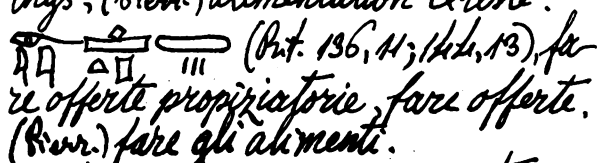 (Rit. 136, 11; 144, 13), fa-
re offerte propiziatorie, fare offerte.
(Pierr.) fare gli alimenti.